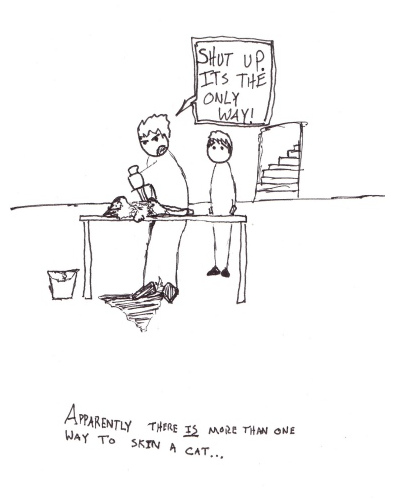 SHUT UP.
ITS THE
ONLY
WAY!
APPARENTLY THERE IS MORE THAN ONE
WAY TO SKIN A CAT...